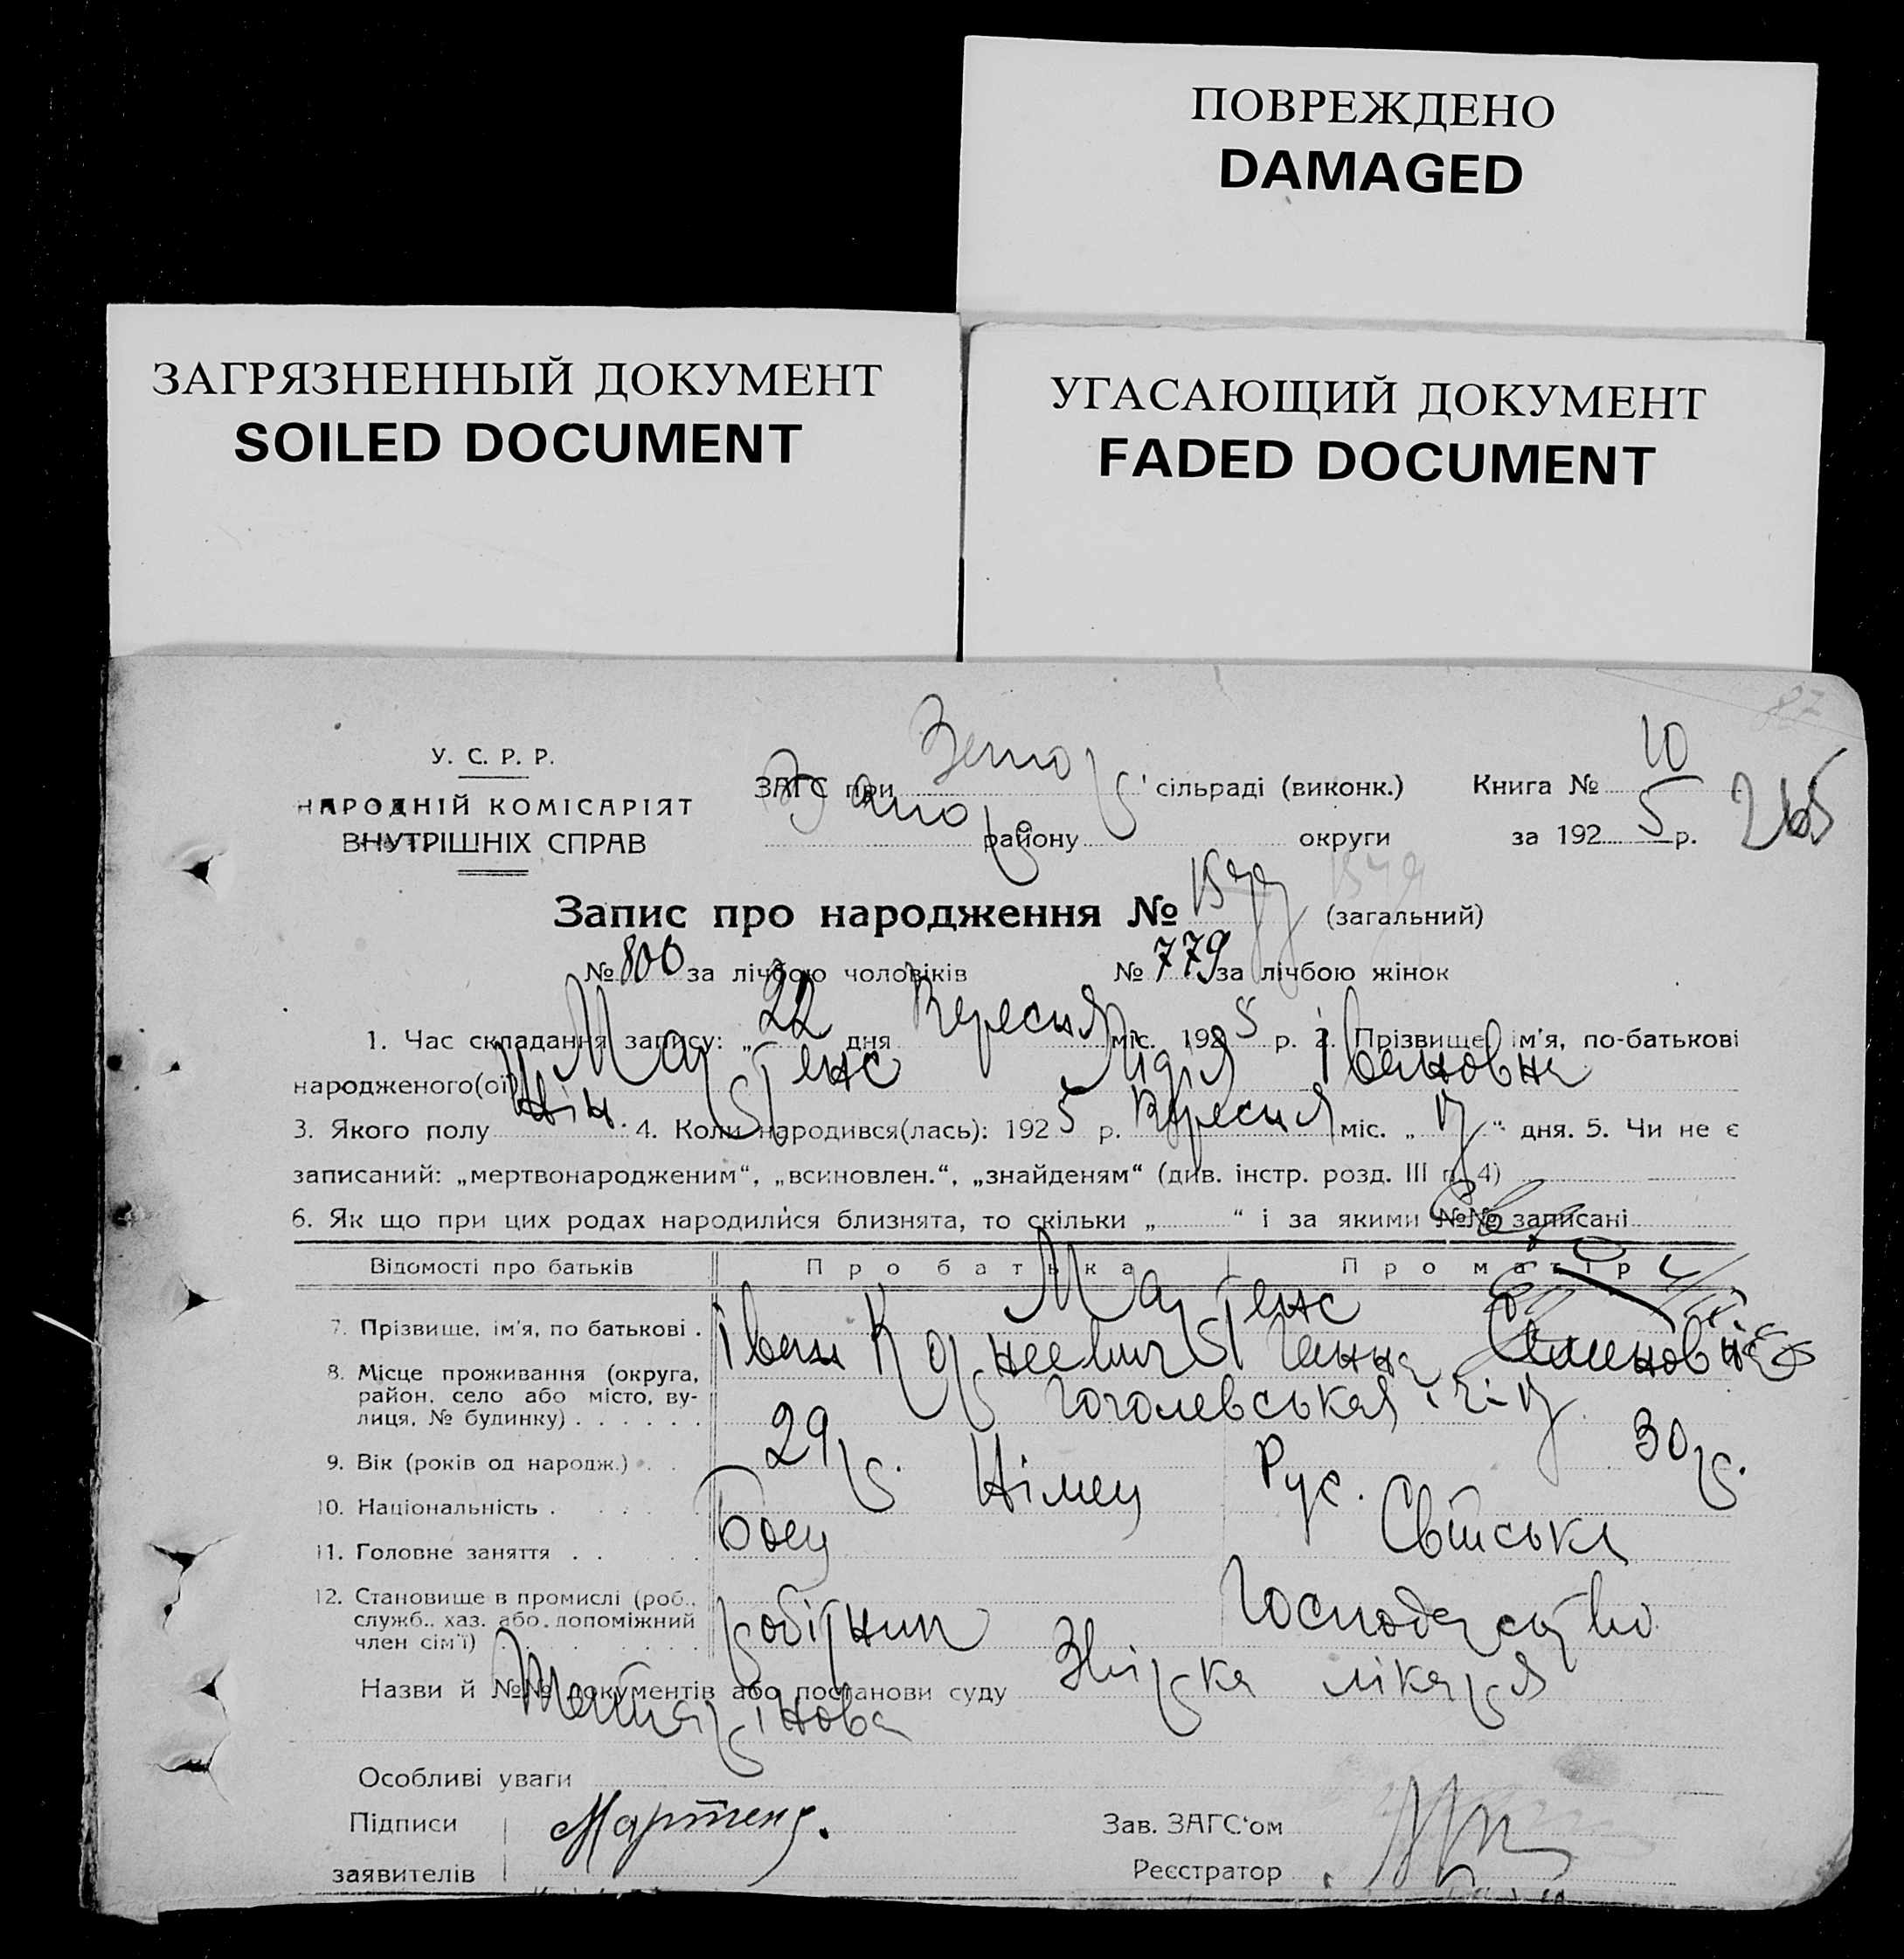 ПОВРЕЖДЕНО
DAMAGED
ЗАГРЯЗНЕННЫЙ ДОКУМЕНТ
SOILED DOCUMENT
УГАСАЮЩИЙ ДОКУМЕНТ
FADED DOCUMENT
87
У. С. Р. Р.
НАРОДНІЙ КОМІСАРІЯТ
ВНУТРІШНІХ СПРАВ
ЗАГС при сільраді (виконк.) Книга № 10
району округи за 1925 р. 265
Запис про народження № 1579 (загальний)
№ 800 за лічбою чоловіків № 779 за лічбою жінок
1. Час складання запису: „22 дня Вересня міс. 1925 р. 2. Прізвище, ім'я, по-батькові
народженого(ої) Мартенс Лідія Івановна
3. Якого полу Жін. 4. Коли народився(лась): 1925 р. Вересня міс. „17“ дня. 5. Чи не є
записаний: „мертвонародженим“, „всиновлен.“, „знайденям“ (див. інстр. розд. III п. 4)
6. Як що при цих родах народилися близнята, то скільки „ “ і за якими №№ записані
Відомості про батьків Про батька Про матір
7. Прізвище, ім'я, по батькові . Мартенс
Іван Корнеевич Ганна Семеновна
8. Місце проживання (округа,
район, село або місто, ву-
лиця, № будинку) . . . . . . Гоголевська
9. Вік (років од народж.) . . 29 р. 30 р.
10. Національність . Німец Рус.
11. Головне заняття . . Боец Світська
12. Становище в промислі (роб.,
служб., хаз. або допоміжний
член сім'ї) робітник Господарство
Назви й №№ документів або постанови суду лікаря
Особливі уваги
Підписи Мартенс. Зав. ЗАГС'ом
заявителів Реєстратор